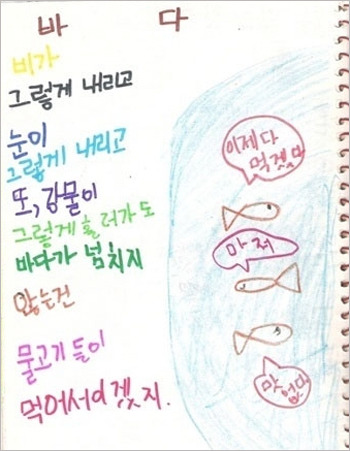 바 다
비가
그렇게 내리고
눈이
그렇게 내리고
또, 강물이
그렇게 흘러가도
바다가 넘치지
않는건
물고기들이
먹어서이겠지.
이제 다
먹겠다
마저
맛 없다